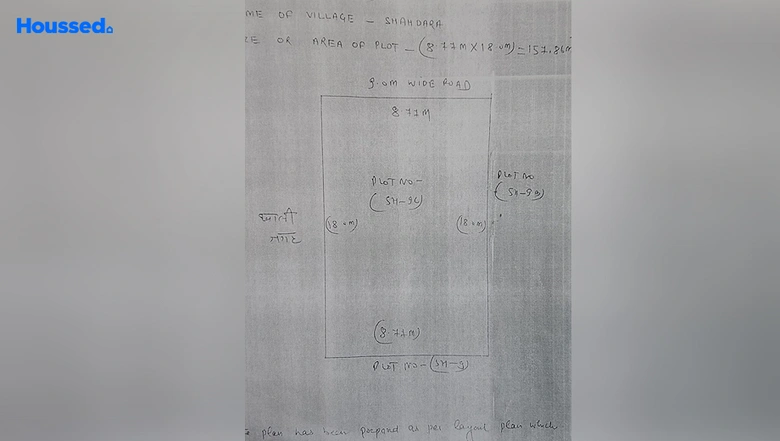 Houssed.
ME OF VILLAGE - SHAHDARA
RE OR AREA OF PLOT - (8.77M X 18.0M) = 157.86M
9.0M WIDE ROAD
8.77M
PLOT NO-
(SH-9C)
PLOT NO
(SH-9B)
खाली
जगह
(18.0M)
(18.0M)
(8.77M)
PLOT NO-(SH-9)
plan has been prepond as per layout plan which